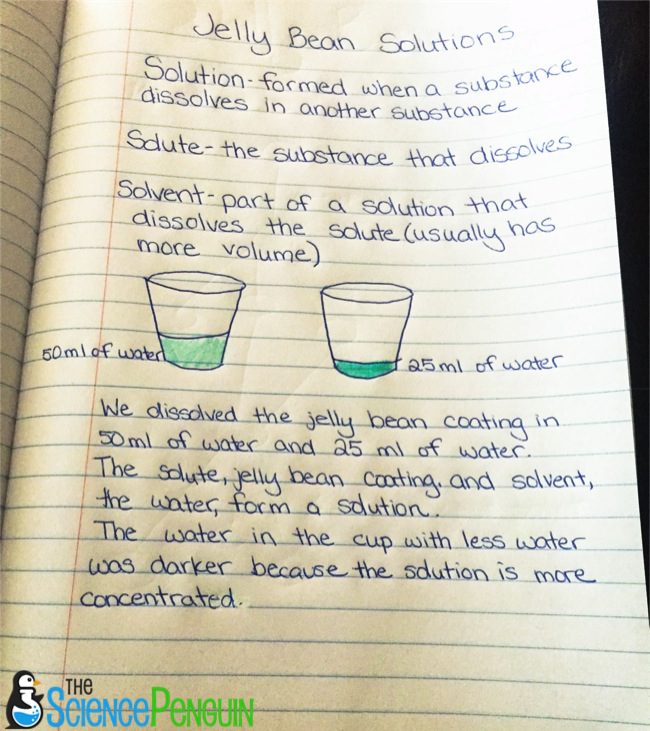 Jelly Bean Solutions
Solution - formed when a substance
dissolves in another substance
Solute - the substance that dissolves
Solvent - part of a solution that
dissolves the solute (usually has
more volume)
50ml of water
25ml of water
We dissolved the jelly bean coating in
50ml of water and 25 ml of water.
The solute, jelly bean coating, and solvent,
the water, form a solution.
The water in the cup with less water
was darker because the solution is more
concentrated.
THE
SCiENCEPENGUiN